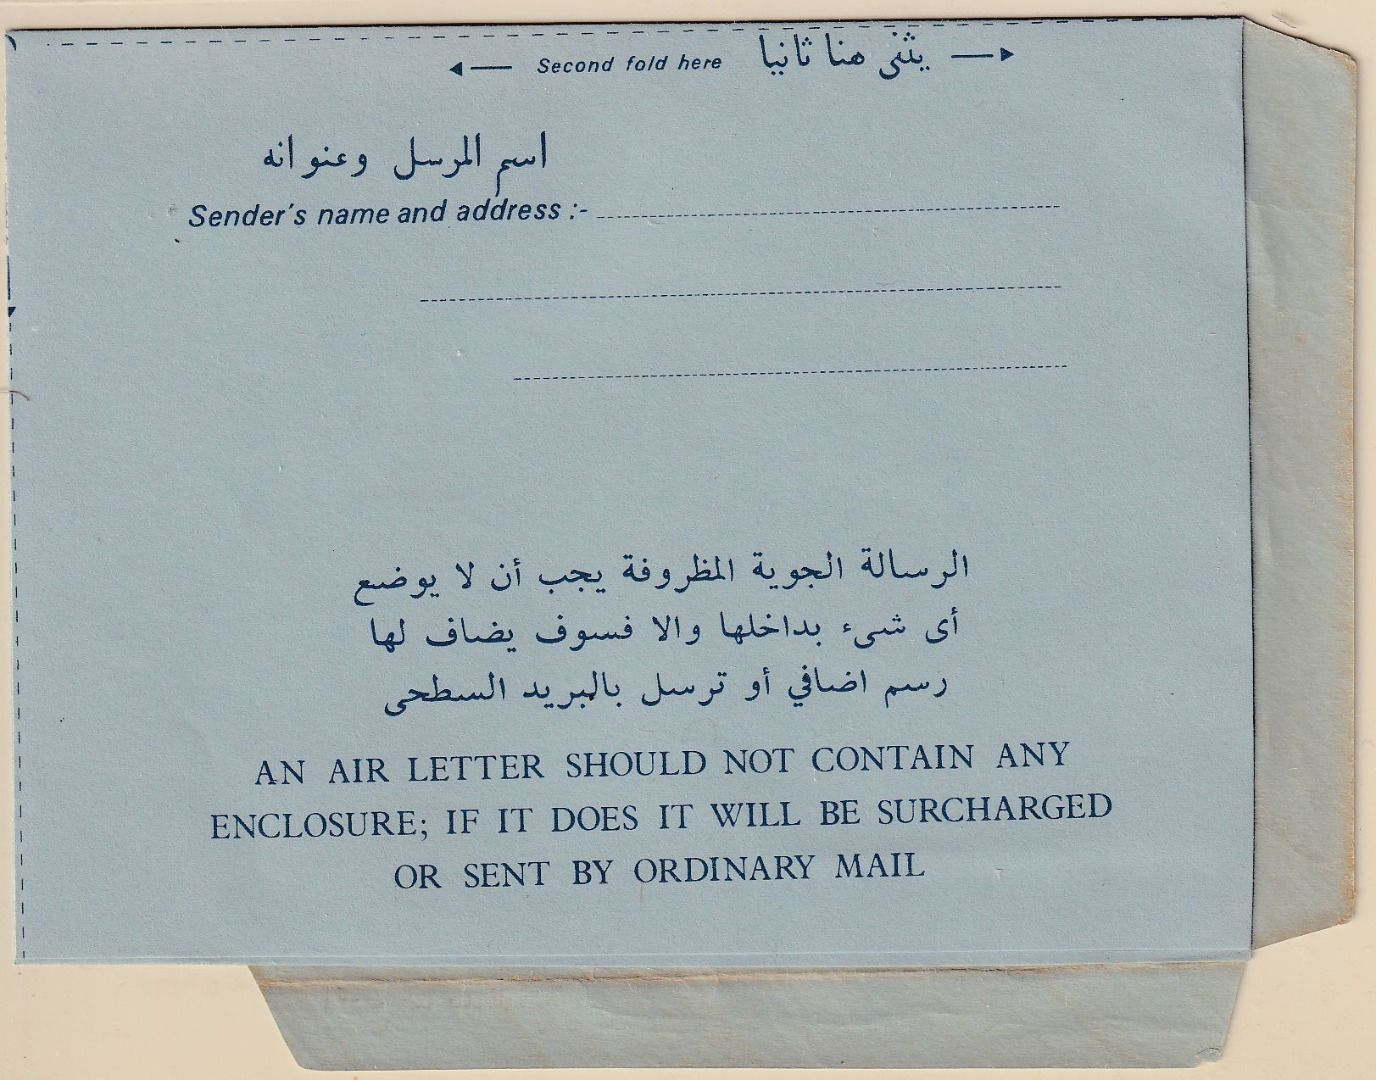 Second fold here يثنى هنا ثانيا
اسم المرسل وعنوانه
Sender's name and address :-
الرسالة الجوية المظروفة يجب أن لا يوضع
أى شىء بداخلها والا فسوف يضاف لها
رسم اضافي أو ترسل بالبريد السطحى
AN AIR LETTER SHOULD NOT CONTAIN ANY
ENCLOSURE; IF IT DOES IT WILL BE SURCHARGED
OR SENT BY ORDINARY MAIL